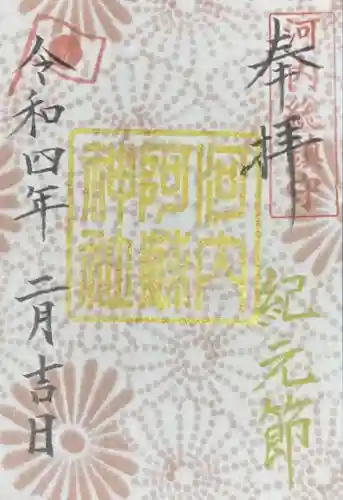 河内総鎮守
奉拝
紀元節
河内
阿蘇
神社
令和四年 二月吉日